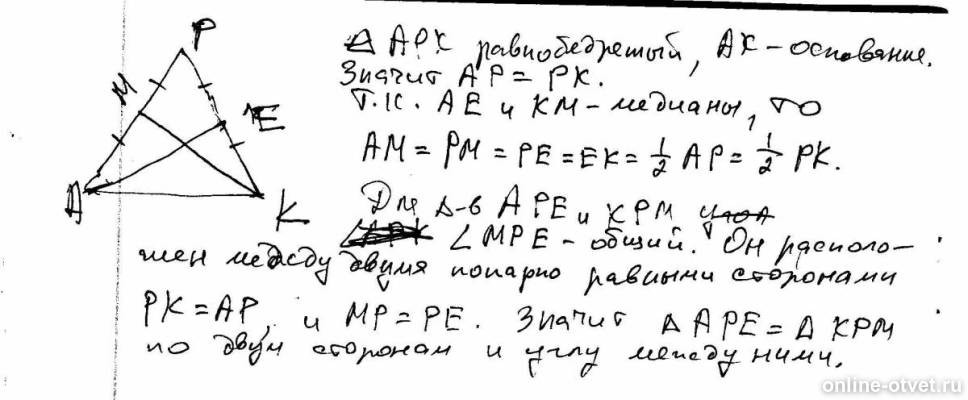 P
M
E
A
K
△ APK равнобедреный, AK - основание.
Значит AP = PK.
Т.к. AE и KM - медианы, то
AM = PM = PE = EK = 1/2 AP = 1/2 PK.
Для △-в APE и KPM
∠MPE - общий. Он располо-
жен между двумя попарно равными сторонами
PK = AP, и MP = PE. Значит △ APE = △ KPM
по двум сторонам и углу между ними.
online-otvet.ru